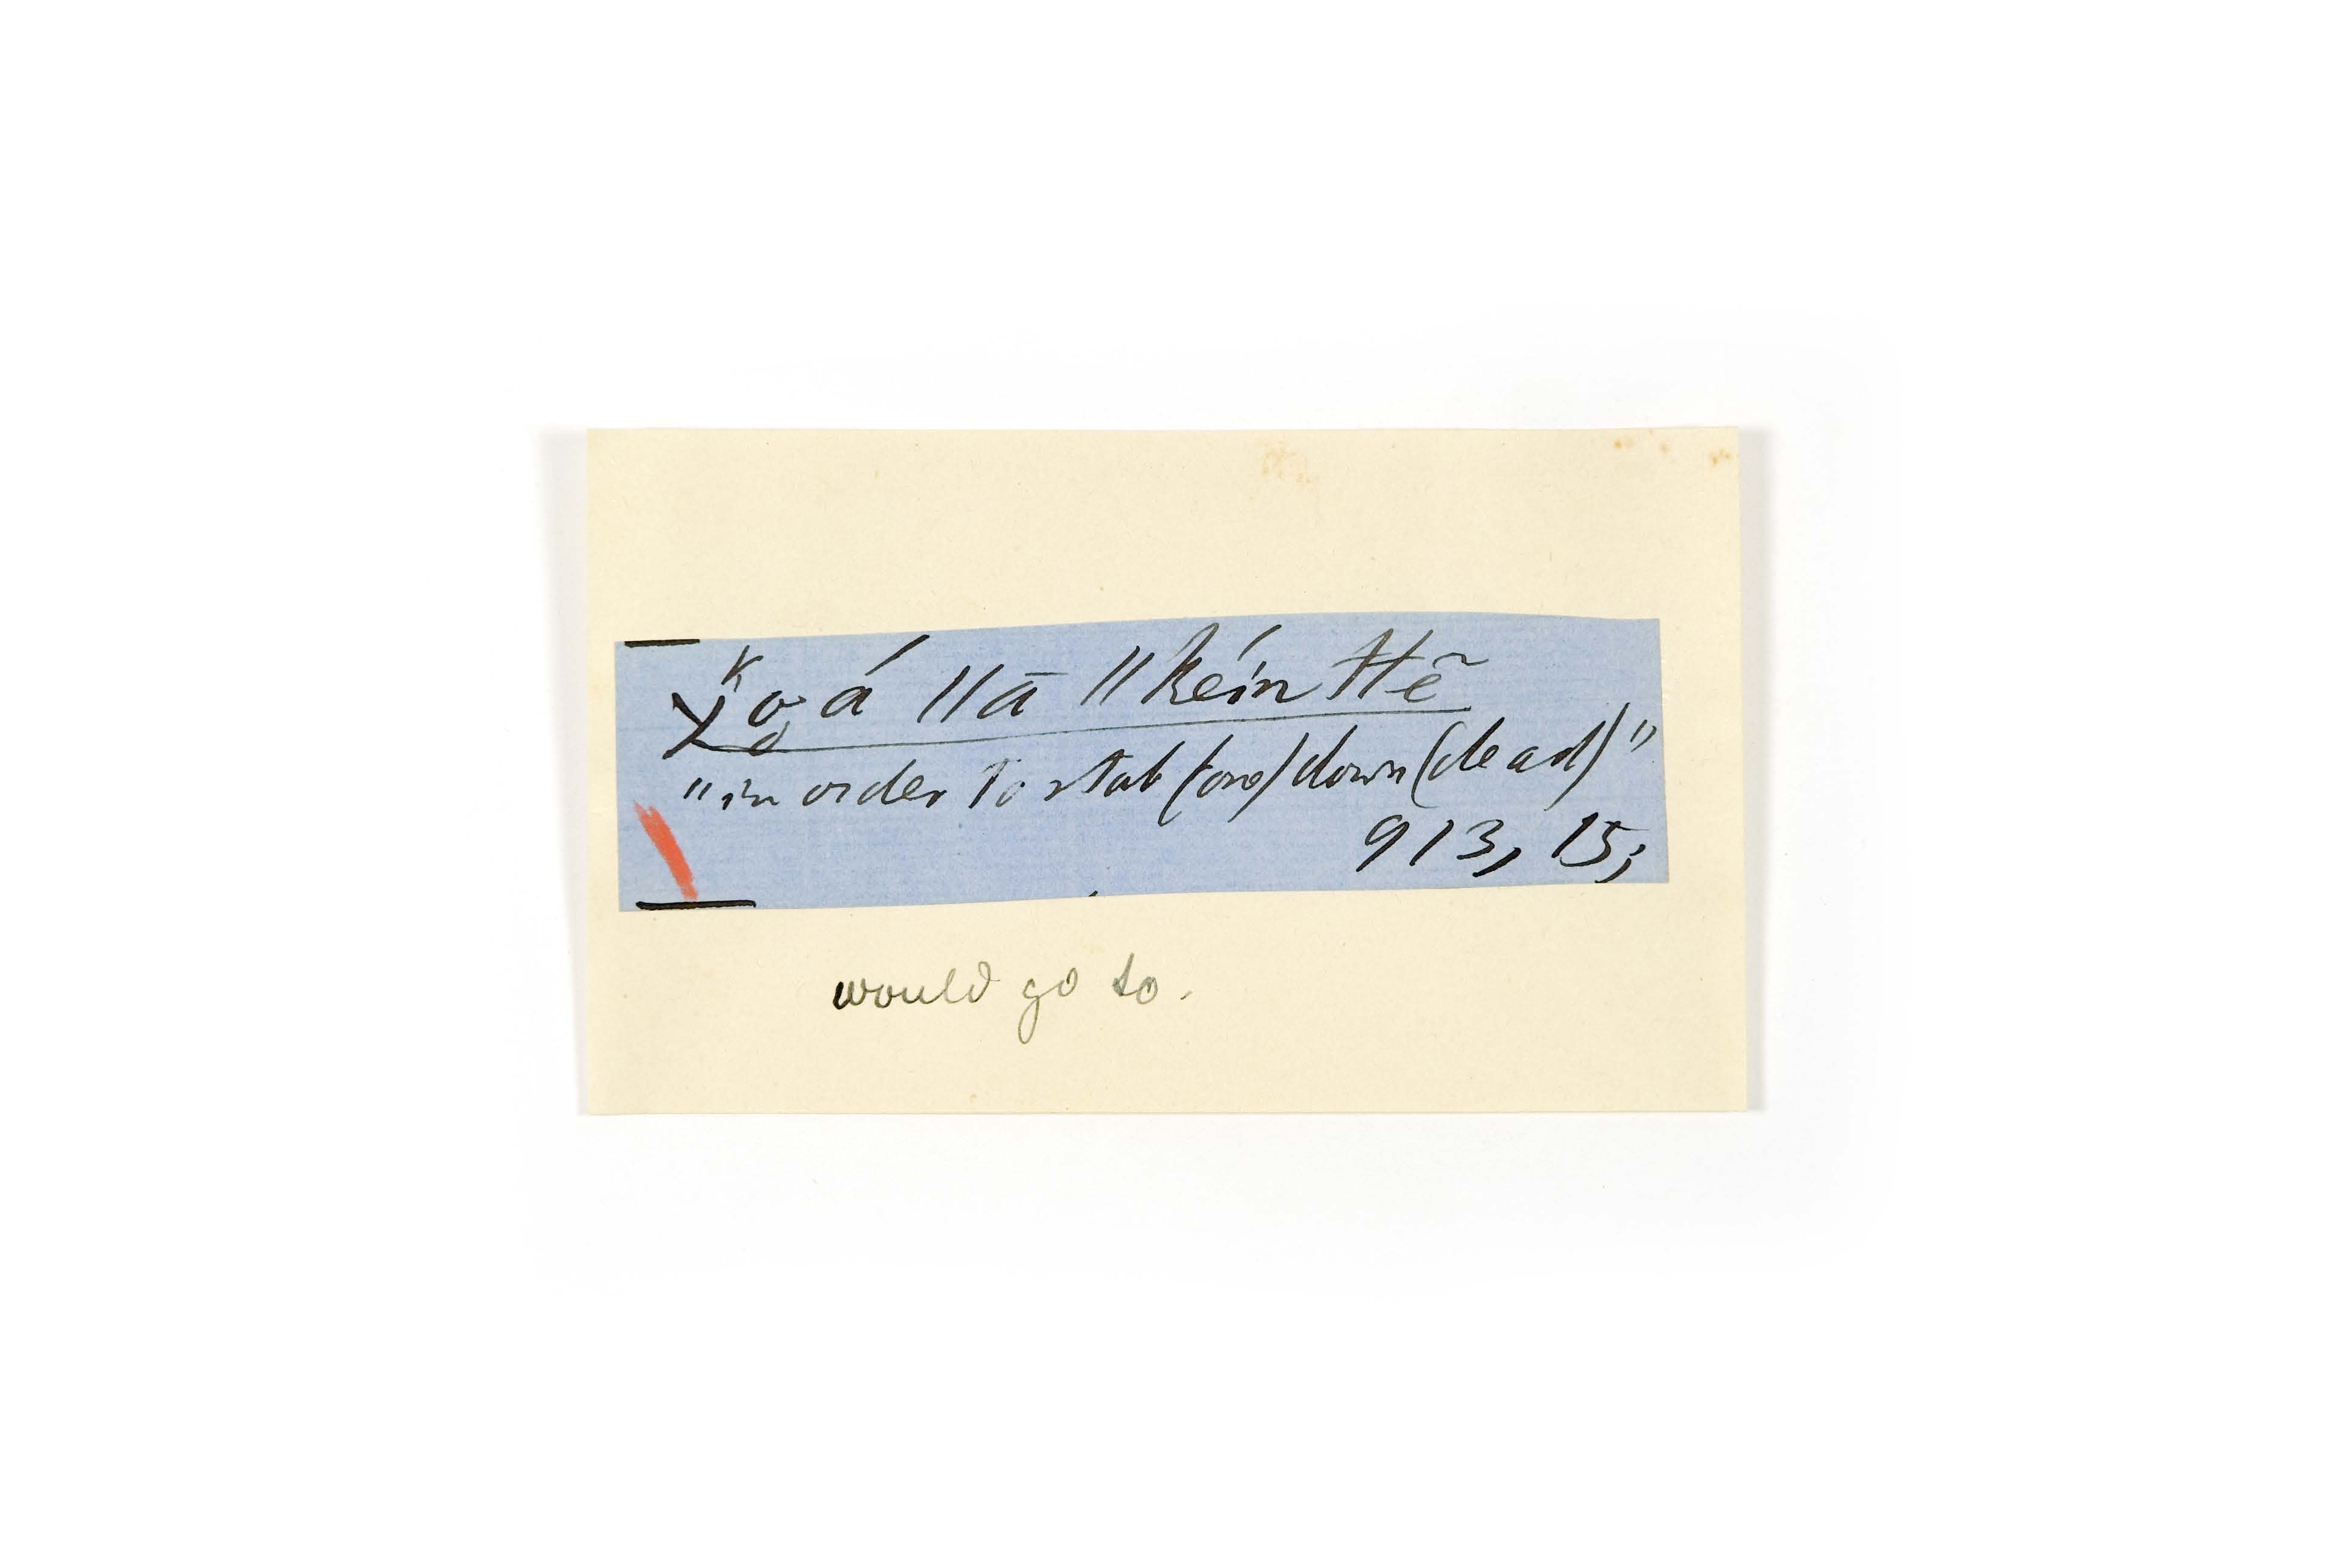 á //ā //kéín ttẽ
"in order to stab (one) down (dead)"
913, 15;
would go to.